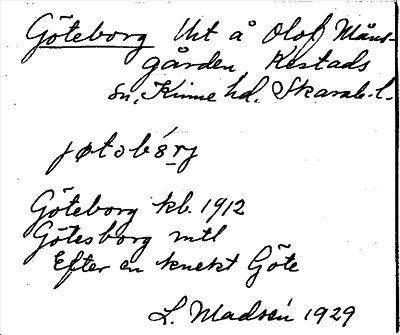 Göteborg Utt å Olof Måns-
gården, Kestads
sn, Kinne hd. Skarab. l.
Göteborg kb. 1912
Götesborg mtl
Efter en knekt Göte
L. Madsén 1929